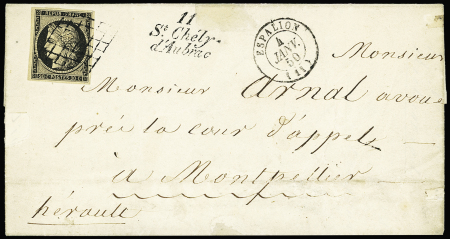 REPUB. FRANC.
20 POSTES 20
11
St Chély-
d'Aubrac
ESPALION
4
JANV.
50
(11)
Monsieur
Monsieur Arnal avoué
près la cour d'appel
à Montpellier
hérault